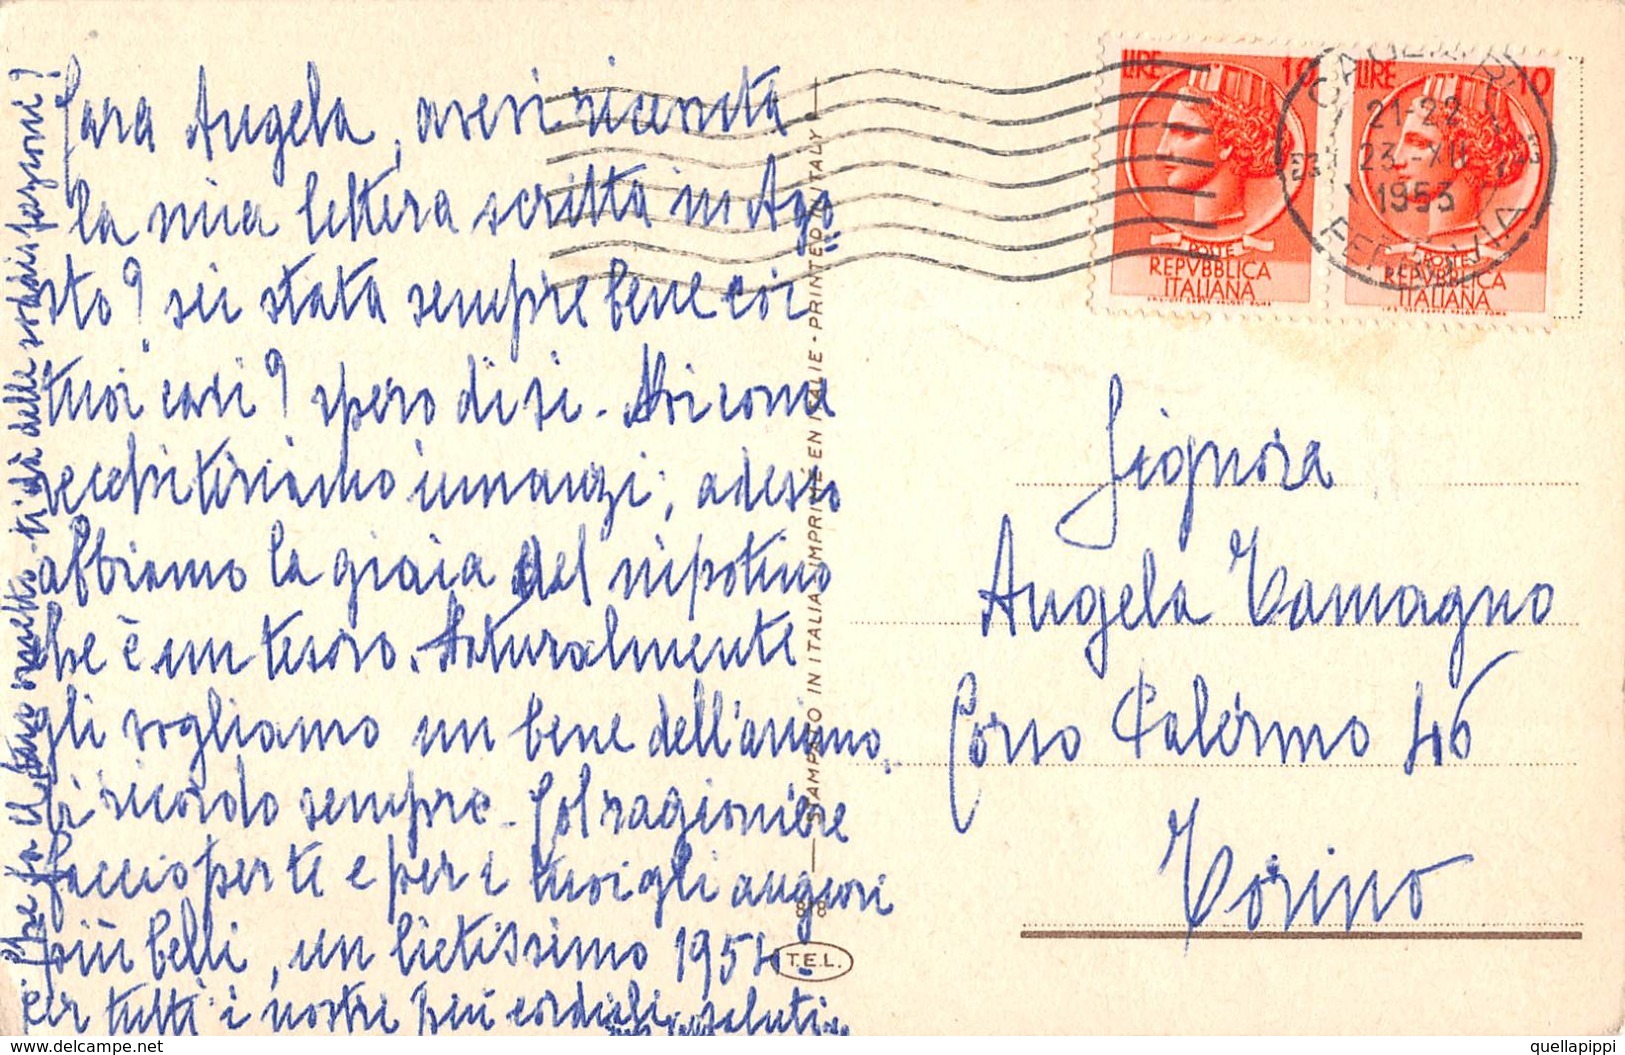 Cara Angela, avevi ricevuta
la mia lettera scritta in Ago
sto? sei stata sempre bene coi
tuoi cari? spero di si. Noi come
vecchi tiriamo innanzi; adesso
abbiamo la gioia del nipotino
che è un tesoro. Naturalmente
gli vogliamo un bene dell'anima.
Ti ricordo sempre. Col ragioniere
faccio per te e per i tuoi gli auguri
più belli, un lietissimo 1954.
Per tutti i nostri più cordiali saluti
Che fa il tuo ometto - ti dà delle soddisfazioni?
STAMPATO IN ITALIA - IMPRIMÉ EN ITALIE - PRINTED IN ITALY
T.E.L.
LIRE 10
POSTE
REPVBBLICA
ITALIANA
LIRE 10
POSTE
REPVBBLICA
ITALIANA
CAGLIARI
21-22
23.-XII
1953
FERROVIA
Signora
Angela Tamagno
Corso Palermo 46
Torino
https://www.delcampe.net
quellapippi